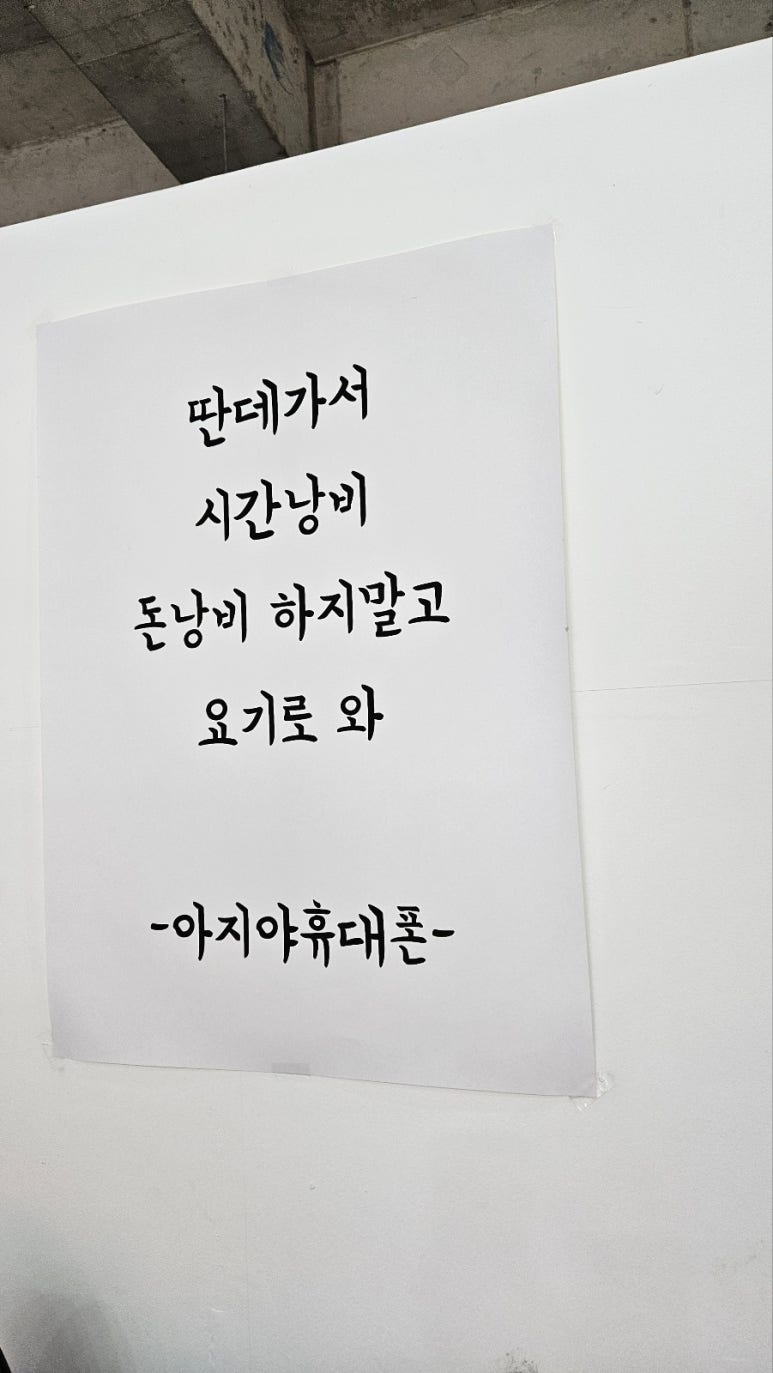 딴데가서
시간낭비
돈낭비 하지말고
요기로 와
-아지야휴대폰-